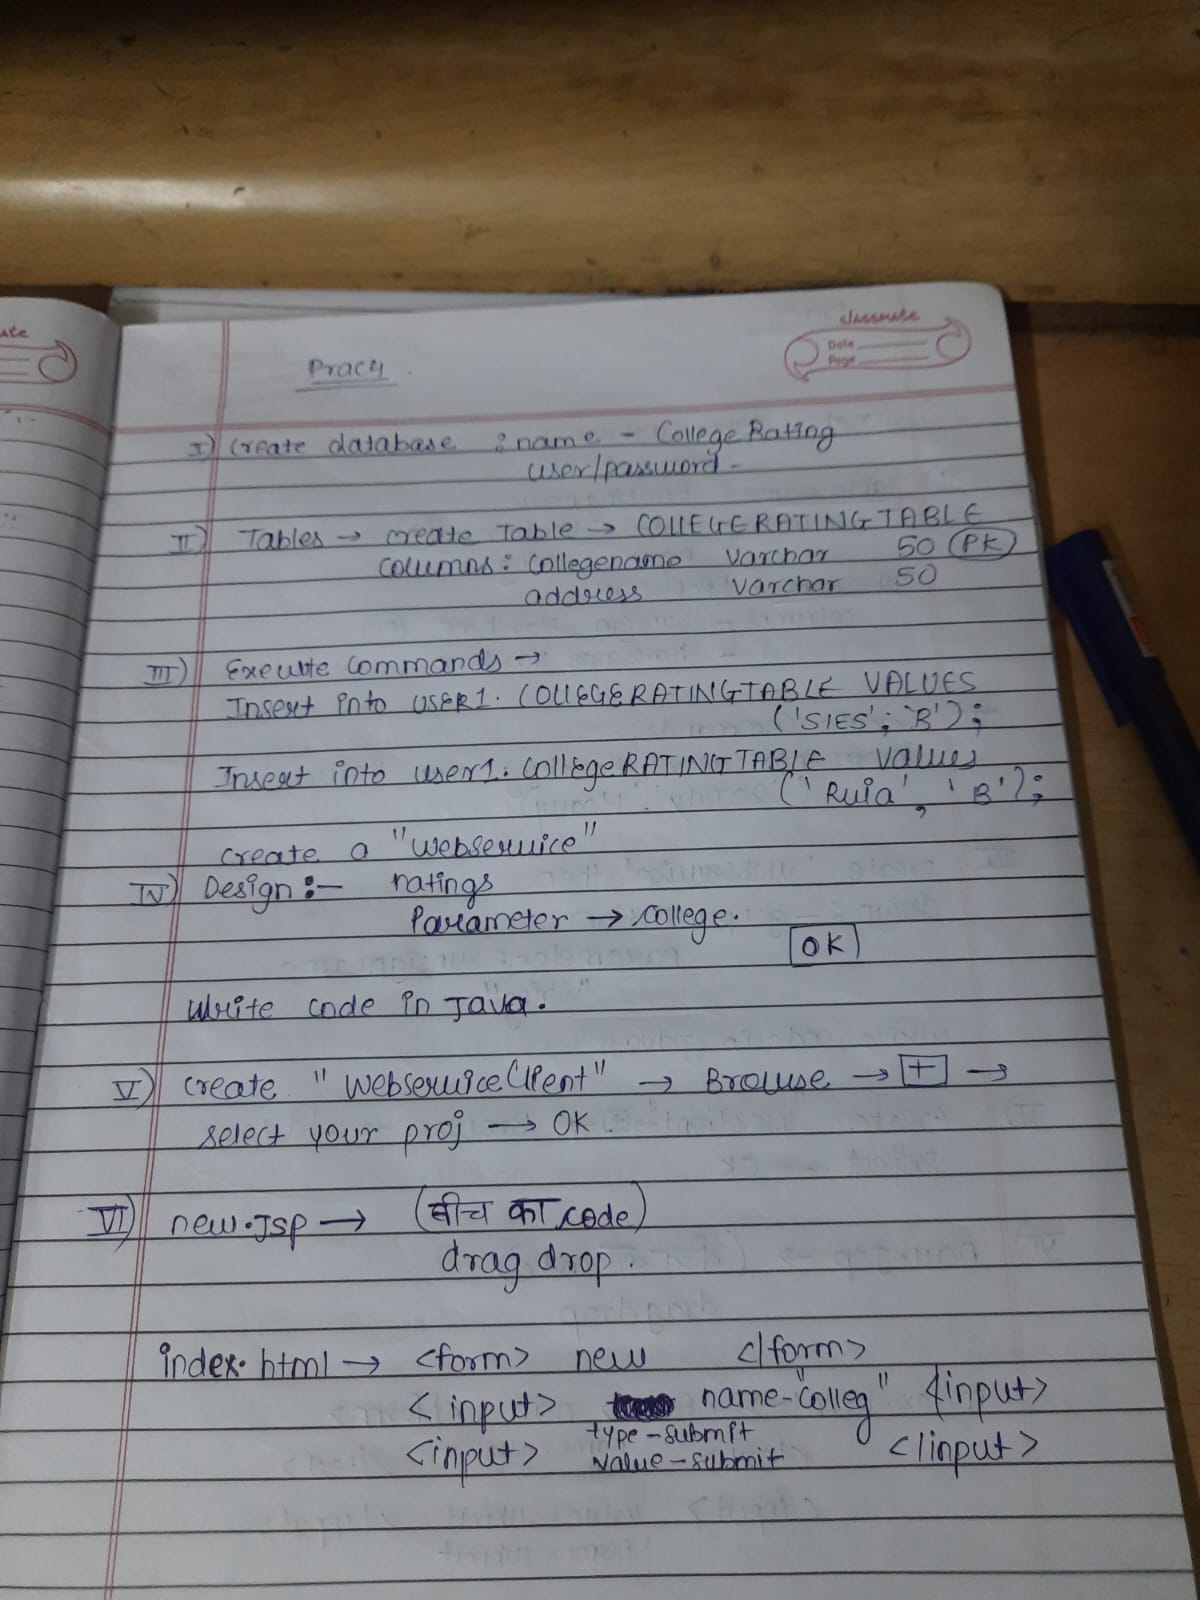 ate
classmate
Date
Page
Prac4.
I) Create database : name - College Rating
user/password -
II) Tables → create Table → COLLEGERATINGTABLE
columns : Collegename varchar 50 (PK)
address varchar 50
III) Execute Commands →
Insert into USER1. COLLEGERATINGTABLE VALUES
('SIES'; 'B');
Insert into user1. CollegeRATINGTABLE values
('Ruia', 'B');
create a "webservice"
IV) Design :- ratings
Parameter → college.
OK
Write code in Java.
V) create "WebserviceClient" → Browse → + →
select your proj → OK.
VI) new.Jsp → (बीच का code)
drag drop.
index.html → <form> new </form>
<input> name-"colleg" </input>
<input> type-submit </input>
value-submit